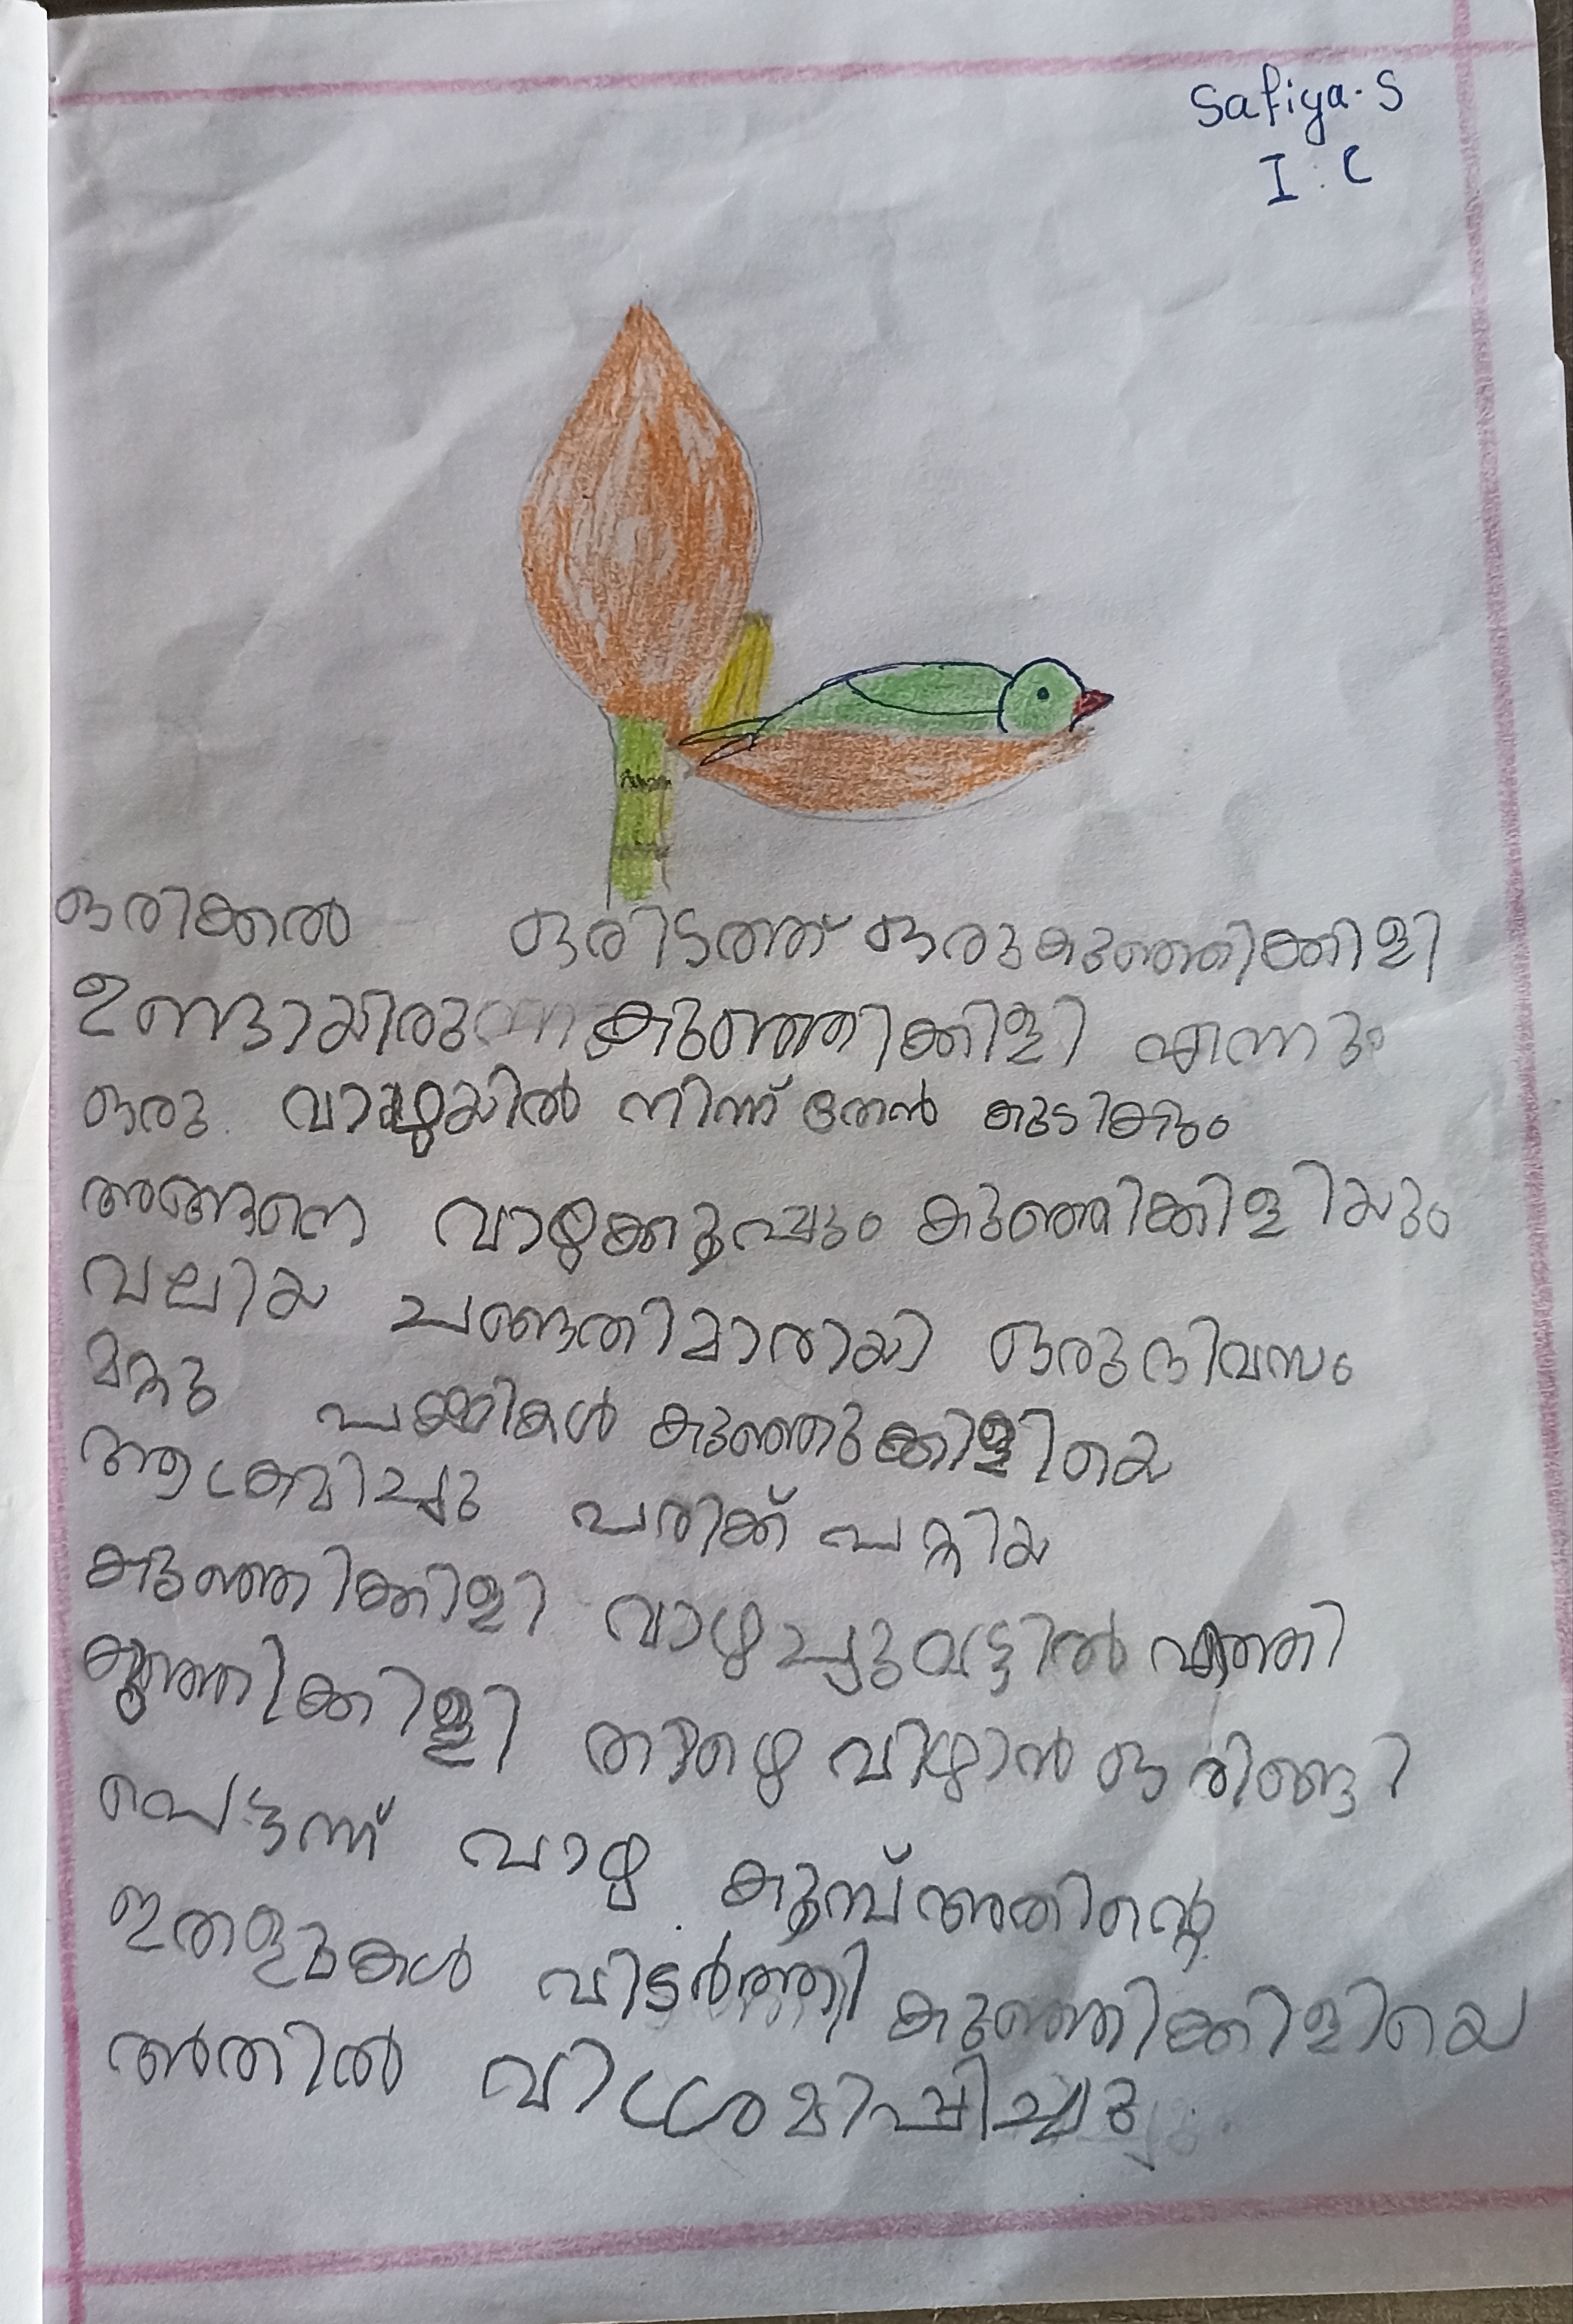 Safiya. S
I. C
ഒരിക്കൽ ഒരിടത്ത് ഒരു കുഞ്ഞിക്കിളി
ഉണ്ടായിരുന്നു കുഞ്ഞിക്കിളി എന്നും
ഒരു വാഴയിൽ നിന്ന് തേൻ കുടിക്കും
അങ്ങനെ വാഴക്കൂമ്പും കുഞ്ഞിക്കിളിയും
വലിയ ചങ്ങാതിമാരായി ഒരു ദിവസം
മറ്റു പക്ഷികൾ കുഞ്ഞുക്കിളിയെ
ആക്രമിച്ചു പരിക്ക് പറ്റിയ
കുഞ്ഞിക്കിളി വാഴച്ചുവട്ടിൽ എത്തി
കുഞ്ഞിക്കിളി താഴെ വീഴാൻ ഒരിങ്ങി
പെട്ടന്ന് വാഴ കൂമ്പ് അതിന്റെ
ഇതളുകൾ വിടർത്തി കുഞ്ഞിക്കിളിയെ
അതിൽ വിശ്രമിപ്പിച്ചു.